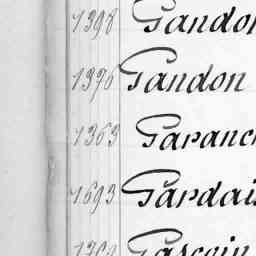 1398 Gandon
1376 Gandon
1363 Garanc
1693 Gardai
Gascoin